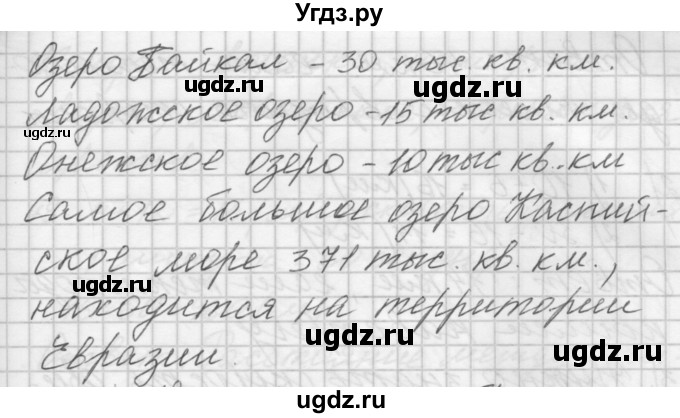 Угдз.ру
Озеро Байкал - 30 тыс. кв. км.
ugdz.ru
ugdz.ru
Ладожское озеро - 15 тыс кв. км.
ugdz.ru
ugdz.ru
Онежское озеро - 10 тыс кв. км
Самое большое озеро Каспий-
ugdz.ru
ское море 371 тыс. кв. км.,
ugdz.ru
находится на территории
ugdz.ru
ugdz.ru
Евразии.
ugdz.ru